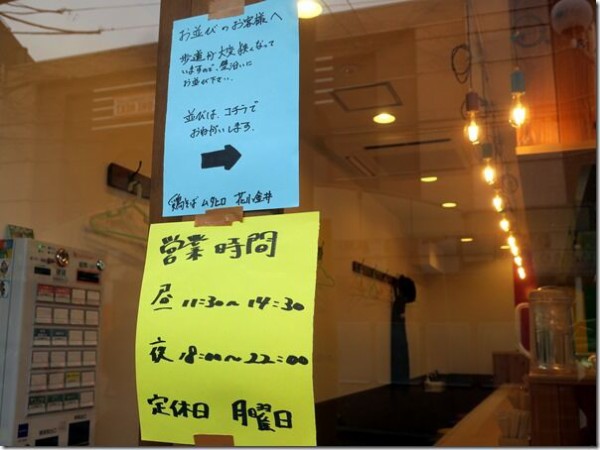 お並びのお客様へ
歩道が大変狭くなって
いますので、壁沿いに
お並び下さい。
並びは、コチラで
お願いします。
鶏そば ムタヒロ 花小金井
営業時間
昼 11:30～14:30
夜 18:00～22:00
定休日 月曜日